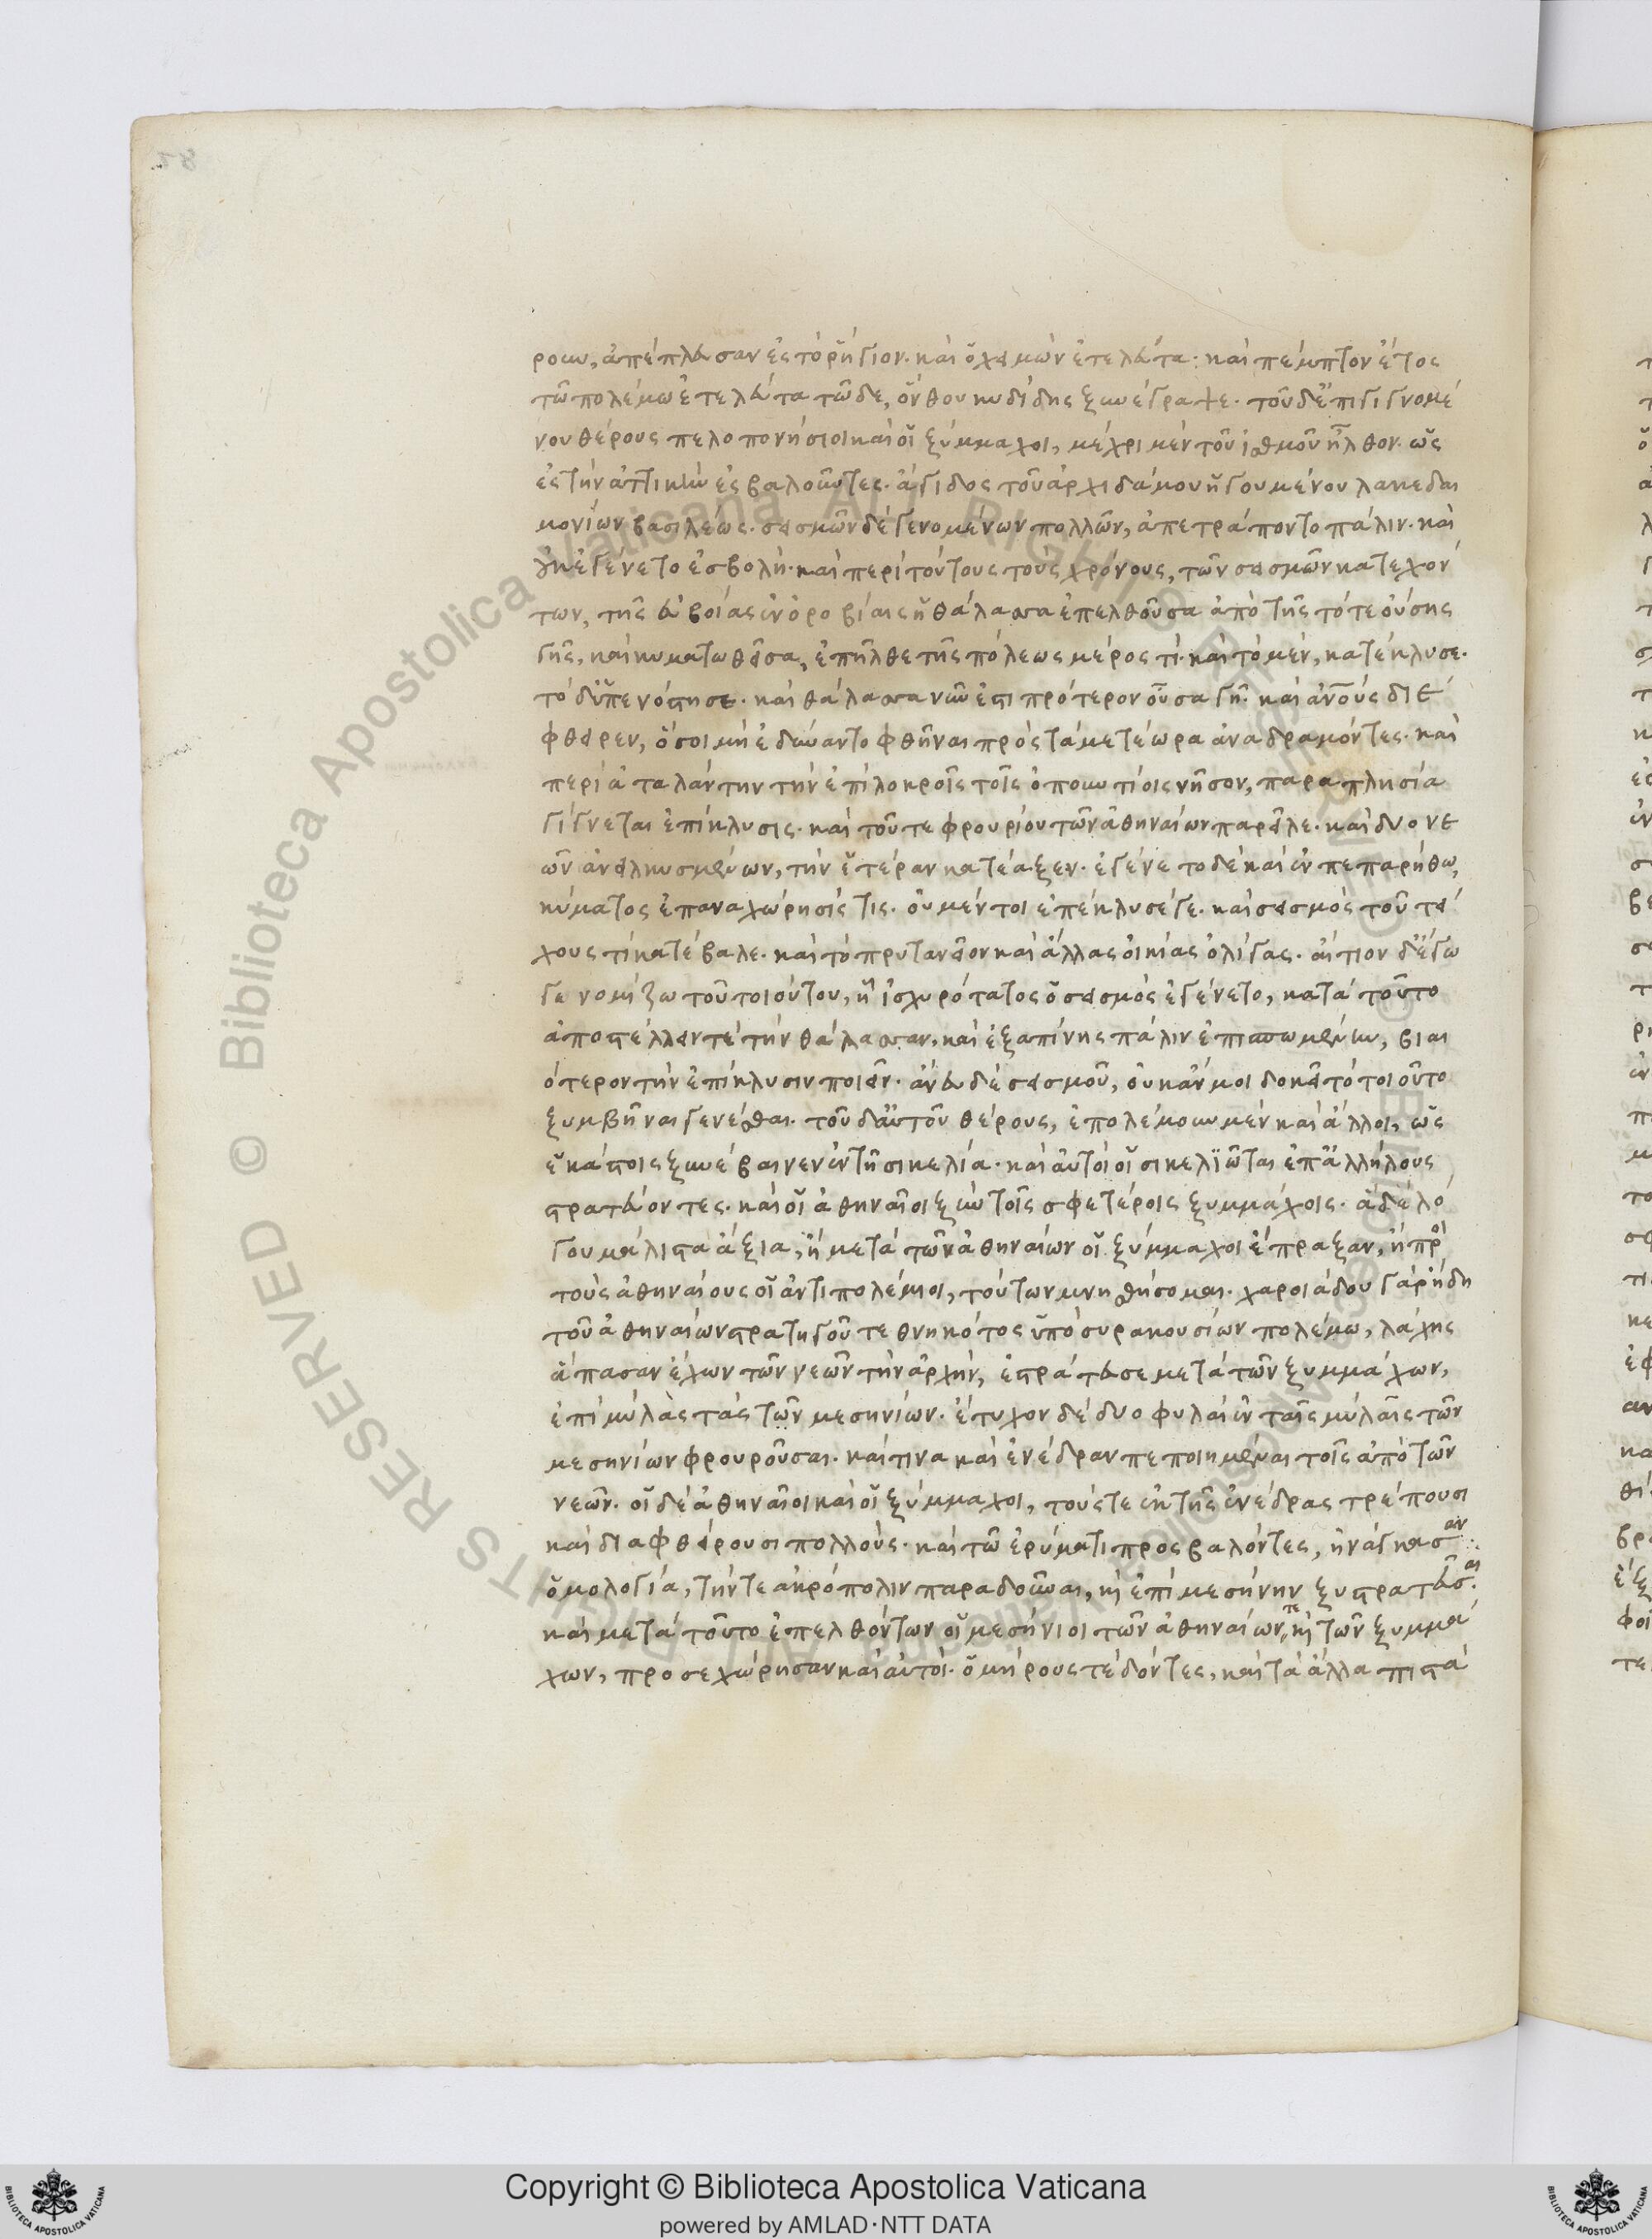 ρουν, ἀπέπλευσαν ἐς τὸ ῥήγιον. καὶ ὁ χειμὼν ἐτελεύτα. καὶ πέμπτον ἔτος
τῶ πολέμω ἐτελεύτα τῶδε, ὃν θουκυδίδης ξυνέγραψε. τοῦ δ' ἐπιγιγνομέ
νου θέρους πελοπονήσιοι καὶ οἱ ξύμμαχοι, μέχρι μὲν τοῦ ἰσθμοῦ ἦλθον. ὡς
ἐς τὴν ἀττικὴν ἐσβαλοῦντες. ἄγιδος τοῦ ἀρχιδάμου ἡγουμένου λακεδαι
μονίων βασιλέως. σεισμῶν δὲ γενομένων πολλῶν, ἀπετράποντο πάλιν. καὶ
οὐκ ἐγένετο ἐσβολή. καὶ περὶ τούτους τοὺς χρόνους, τῶν σεισμῶν κατεχόν
των, τῆς εὐβοίας ἐν ὀροβίαις ἡ θάλασσα ἐπελθοῦσα ἀπὸ τῆς τότε οὔσης
γῆς, καὶ κυματωθεῖσα, ἐπῆλθε τῆς πόλεως μέρος τί. καὶ τὸ μὲν, κατέκλυσε.
τὸ δ' ὑπενόστησε. καὶ θάλασσα νῦν ἐστι πρότερον οὖσα γῆ. καὶ ἀνους διέ
φθειρεν, ὅσοι μὴ ἐδύναντο φθῆναι πρὸς τὰ μετέωρα ἀναδραμόντες. καὶ
περὶ ἀταλάντην τὴν ἐπὶ λοκροῖς τοῖς ὀπουντίοις νῆσον, παραπλησία
γίγνεται ἐπίκλυσις. καὶ τοῦ τε φρουρίου τῶν ἀθηναίων παρεῖλε. καὶ δύο νε
ῶν ἀνειλκυσμένων, τὴν ἑτέραν κατέαξεν. ἐγένετο δὲ καὶ ἐν πεπαρήθω,
κύματος ἐπαναχώρησίς τις. οὐ μέντοι ἐπέκλυσέ γε. καὶ σεισμὸς τοῦ τεί
χους τὶ κατέβαλε. καὶ τὸ πρυτανεῖον καὶ ἄλλας οἰκίας ὀλίγας. αἴτιον δ' ἔγω
γε νομίζω τοῦ τοιούτου, ἧ ἰσχυρότατος ὁ σεισμὸς ἐγένετο, κατὰ τοῦτο
ἀποστέλλειν τε τὴν θάλασσαν, καὶ ἐξαπίνης πάλιν ἐπισπωμένην, βιαι
ότερον τὴν ἐπίκλυσιν ποιεῖν. ἄνευ δὲ σεισμοῦ, οὐκ ἄν μοι δοκεῖ τὸ τοιοῦτο
ξυμβῆναι γενέσθαι. τοῦ δ' αὐτοῦ θέρους, ἐπολέμουν μὲν καὶ ἄλλοι, ὡς
ἑκάστοις ξυνέβαινεν ἐν τῆ σικελία. καὶ αὐτοὶ οἱ σικελιῶται ἐπ' ἀλλήλους
στρατεύοντες. καὶ οἱ ἀθηναῖοι ξὺν τοῖς σφετέροις ξυμμάχοις. ἃ δὲ λό
γου μάλιστα ἄξια, ἢ μετὰ τῶν ἀθηναίων οἱ ξύμμαχοι ἔπραξαν, ἢ πρὸς
τοὺς ἀθηναίους οἱ ἀντιπολέμιοι, τούτων μνησθήσομαι. χαροιάδου γὰρ ἤδη
τοῦ ἀθηναίων στρατηγοῦ τεθνηκότος ὑπὸ συρακουσίων πολέμω, λάχης
ἅπασαν ἔχων τῶν νεῶν τὴν ἀρχὴν, ἐστράτευσε μετὰ τῶν ξυμμάχων,
ἐπὶ μύλας τὰς τῶν μεσηνίων. ἔτυχον δὲ δύο φυλαὶ ἐν ταῖς μύλαις τῶν
μεσηνίων φρουροῦσαι. καί τινα καὶ ἐνέδραν πεποιημέναι τοῖς ἀπὸ τῶν
νεῶν. οἱ δὲ ἀθηναῖοι καὶ οἱ ξύμμαχοι, τούς τε ἐκ τῆς ἐνέδρας τρέπουσι
καὶ διαφθείρουσι πολλούς. καὶ τῶ ἐρύματι προσβαλόντες, ἠνάγκασαν
ὁμολογία, τήν τε ἀκρόπολιν παραδοῦναι, κὶ ἐπὶ μεσήνην ξυστρατεῦσαι.
καὶ μετὰ τοῦτο ἐπελθόντων οἱ μεσήνιοι τῶν ἀθηναίων τε κὶ τῶν ξυμμά
χων, προσεχώρησαν καὶ αὐτοί. ὁμήρους τε δόντες, καὶ τὰ ἄλλα πιστὰ
© Biblioteca Apostolica Vaticana ALL RIGHTS RESERVED
Copyright © Biblioteca Apostolica Vaticana
powered by AMLAD·NTT DATA